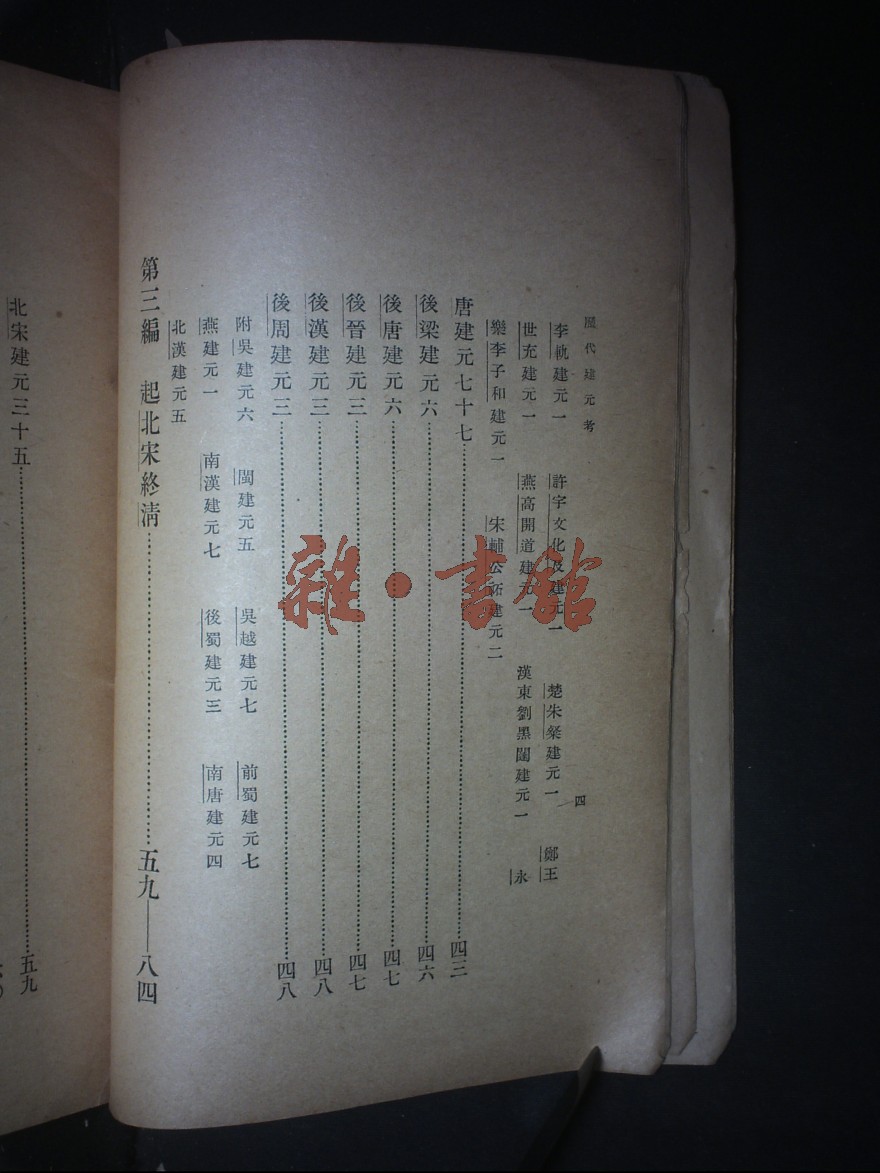 歷代建元考
四
李軌建元一 許宇文化及建元一 楚朱粲建元一 鄭王
世充建元一 燕高開道建元一 漢東劉黑闥建元一 永
樂李子和建元一 宋輔公祏建元二
唐建元七十七 四三
後梁建元六 四六
後唐建元六 四七
後晉建元三 四七
後漢建元三 四八
後周建元三 四八
附吳建元六 閩建元五 吳越建元七 前蜀建元七
燕建元一 南漢建元七 後蜀建元三 南唐建元四
北漢建元五
第三編 起北宋終清 五九——八四
北宋建元三十五 五九
雜·書館